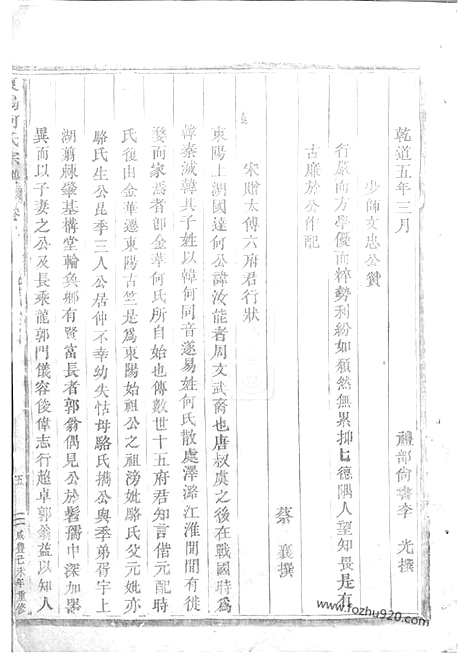 乾道五年三月 禮部尙書李 光撰
少師文忠公贊
行嚴而方學優而粹勢利紛如頹然無累抑抑德隅人望知畏是有
古廉於公作配
宋贈太傅六府君行狀
蔡 襄撰
東陽上湖國達何公諱汝能者周文武裔也唐叔虞之後在戰國時爲
韓秦滅韓其子姓以韓何同音遂易姓何氏散處澤潞江淮間間有徙
婺而家焉者即金華何氏所自始也傳數世十五府君知言偕元配時
氏復由金華遷東陽古竺是爲東陽始祖公之祖滂妣駱氏父元妣亦
駱氏生公昆季三人公居仲不幸幼失怙母駱氏攜公與季弟胥宇上
湖翦棘肇基構堂輪奐鄉有賢富長者郭翁偶見公於髫孺中深加器
異而以子妻之公及長乘龍郭門儀容俊偉志行超卓郭翁益以知人
五
咸豐己未年重修
www.fozhu920.com